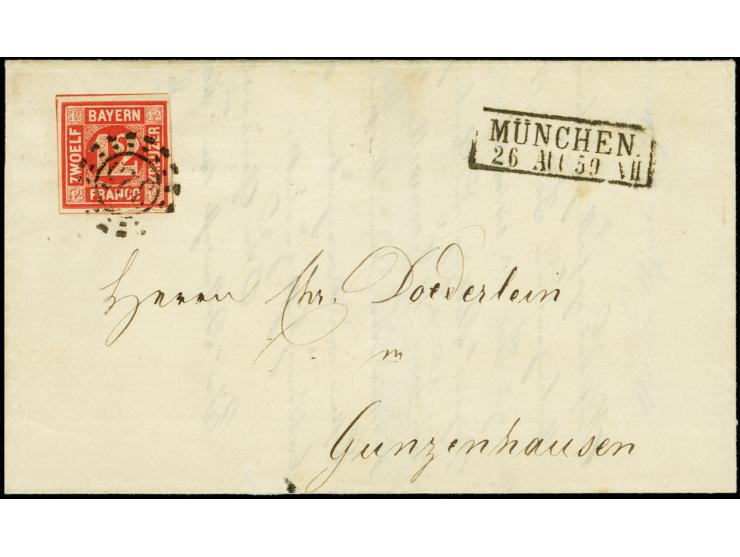 BAYERN
12 12
ZWOELF
FRANCO
12
MÜNCHEN.
26 AUG 59 VII
Herrn Chr. Doederlein
in
Gunzenhausen